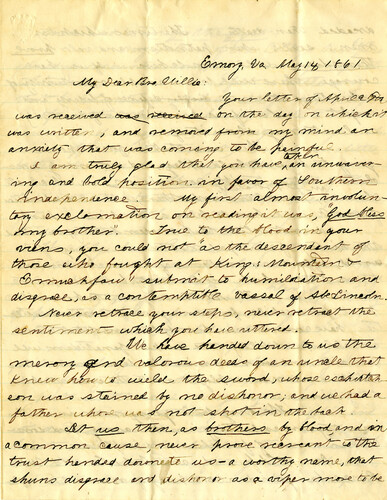 Emory, Va May 14, 1861
My Dear Bro Willie:
Your letter of April
was received was received on the day on which it
was written, and removed from my mind an
anxiety that was coming to be painful.
I am truly glad that you have taken an unwaver-
ing and bold position in favor of Southern
independence. My first almost involun-
tary exclamation on reading it was, God bless
my brother. True to the blood in your
veins, you could not as the descendant of
those who fought at Kings Mountain &
Emuckfaw submit to humiliation and
disgrace, as a contemptible vassal of Lincoln.
Never retrace your steps, never retract the
sentiment which you have uttered.
We have handed down to us the
memory and valorous deeds of an uncle that
knew how to wield the sword, whose escutch-
eon was stained by no dishonor, and we had a
father who was not shot in the back.
Let us then, as brothers by blood and in
a common cause, never prove recreant to the
trust handed down to us - a worthy name, that
shuns disgrace and dishonor as a viper more to be